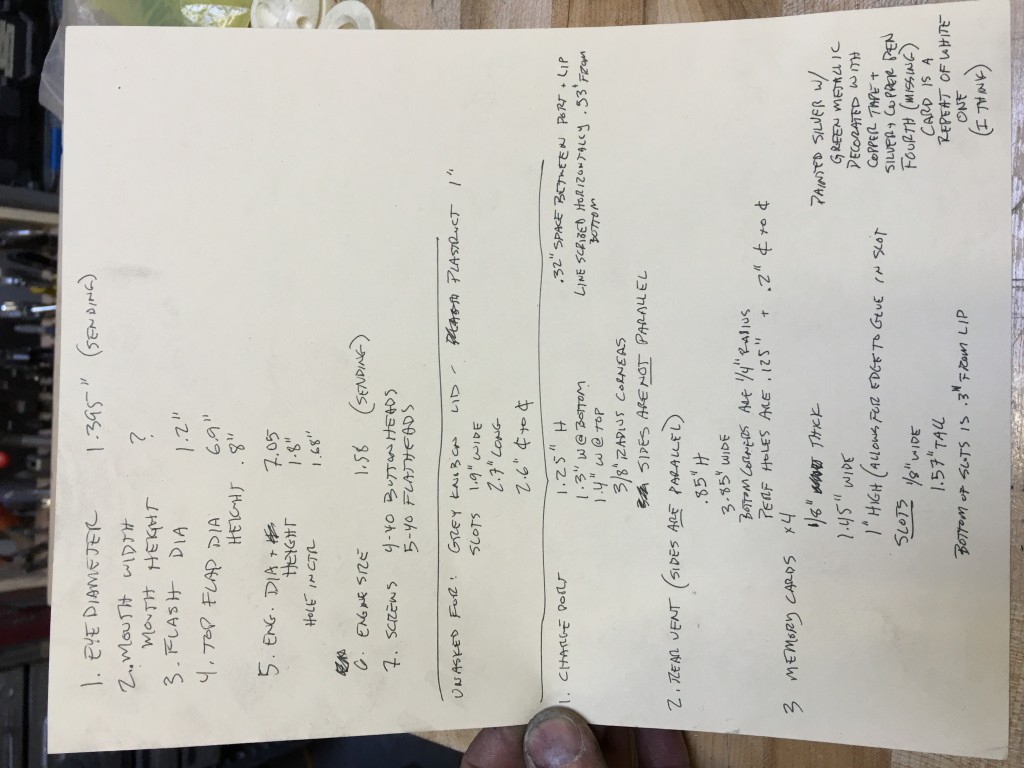 1. EYE DIAMETER 1.395" (SENDING)
2. MOUTH WIDTH
MOUTH HEIGHT ?
3. FLASH DIA 1.2"
4. TOP FLAP DIA 6.9"
HEIGHT .8"
5. ENG. DIA + 7.05
HEIGHT 1.8"
HOLE IN CTR 1.68"
6. ENGINE SIZE 1.58 (SENDING)
7. SCREWS 4-40 BUTTON HEADS
5-40 FLATHEADS
UNASKED FOR: GREY LID - PLASTRUCT 1"
SLOTS 1.9" WIDE
2.7" LONG
2.6" ℄ TO ℄
1. CHARGE PORT 1.25" H
1.3" W @ BOTTOM
1.4" W @ TOP
3/8" RADIUS CORNERS
SIDES ARE NOT PARALLEL
.32" SPACE BETWEEN PORT + LIP
LINE SCRIBED HORIZONTALLY .53" FROM
BOTTOM
2. REAR VENT (SIDES ARE PARALLEL)
.85" H
3.85" WIDE
BOTTOM CORNERS ARE 1/4" RADIUS
PERF HOLES ARE .125" + .2" ℄ TO ℄
3 MEMORY CARDS x4
1/8" THICK
1.45" WIDE
1" HIGH (ALLOWS FOR EDGE TO GLUE IN SLOT
SLOTS 1/8" WIDE
1.57" TALL
BOTTOM OF SLOTS IS .3" FROM LIP
PAINTED SILVER W/
GREEN METALLIC
DECORATED WITH
COPPER TAPE +
SILVER, COPPER PEN
FOURTH (MISSING)
CARD IS A
REPEAT OF WHITE
ONE
(I THINK)